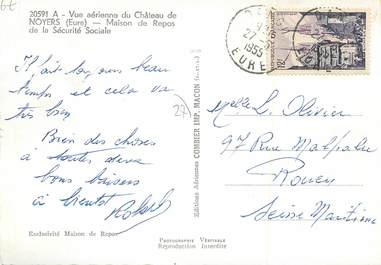 6E
20591 A - Vue aérienne du Château de
NOYERS (Eure) — Maison de Repos
de la Sécurité Sociale
27
1955
EURE
Il fait toujours beau
temps et cela va
très bien
Bien des choses
à toutes deux
bons baisers
à bientôt
Robert
27
Editions Aériennes COMBIER IMP. MACON
Melle L. Olivier
97 Rue Malpalu
Rouen
Seine Maritime
Exclusivité Maison de Repos
PHOTOGRAPHIE VÉRITABLE
Reproduction Interdite